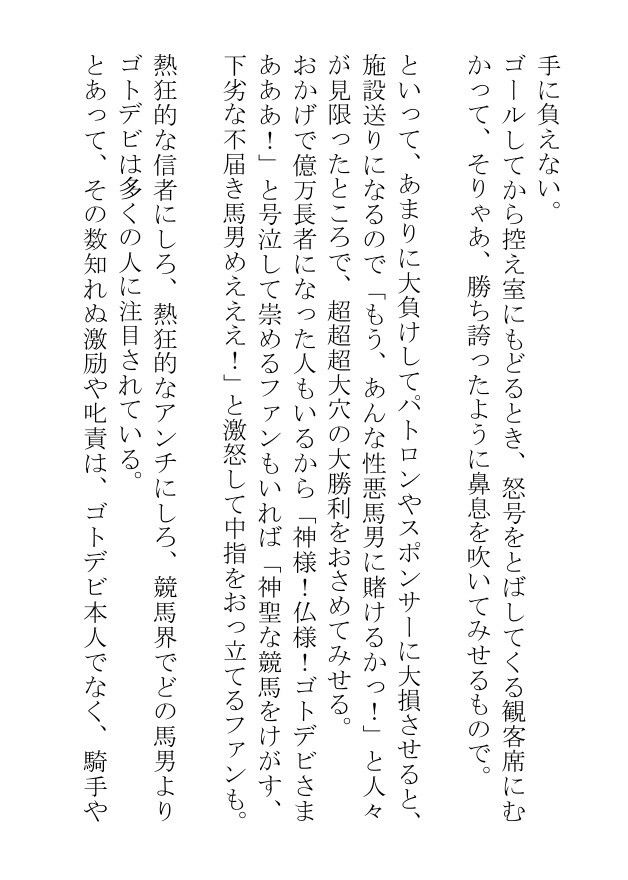 手に負えない。
ゴールしてから控え室にもどるとき、怒号をとばしてくる観客席にむ
かって、そりゃあ、勝ち誇ったように鼻息を吹いてみせるもので。
といって、あまりに大負けしてパトロンやスポンサーに大損させると、
施設送りになるので「もう、あんな性悪馬男に賭けるかっ！」と人々
が見限ったところで、超超超大穴の大勝利をおさめてみせる。
おかげで億万長者になった人もいるから「神様！仏様！ゴトデビさま
あああ！」と号泣して崇めるファンもいれば「神聖な競馬をけがす、
下劣な不届き馬男めえええ！」と激怒して中指をおっ立てるファンも。
熱狂的な信者にしろ、熱狂的なアンチにしろ、競馬界でどの馬男より
ゴトデビは多くの人に注目されている。
とあって、その数知れぬ激励や叱責は、ゴトデビ本人でなく、騎手や